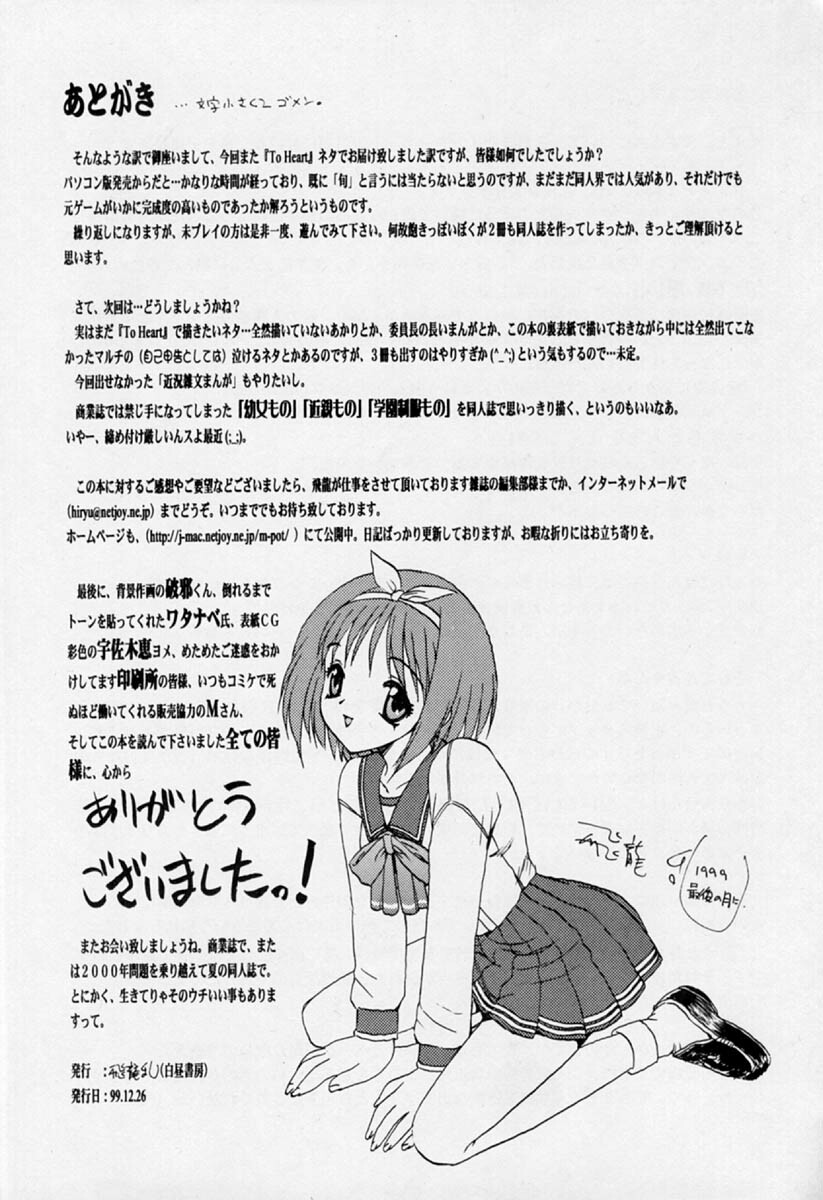 あとがき …文字小さくて ゴメン。
そんなような訳で御座いまして、今回また『To Heart』ネタでお届け致しました訳ですが、皆様如何でしたでしょうか？
パソコン版発売からだと…かなりな時間が経っており、既に「旬」と言うには当たらないと思うのですが、まだまだ同人界では人気があり、それだけでも
元ゲームがいかに完成度の高いものであったか解ろうというものです。
繰り返しになりますが、未プレイの方は是非一度、遊んでみて下さい。何故飽きっぽいぼくが２冊も同人誌を作ってしまったか、きっとご理解頂けると
思います。
さて、次回は…どうしましょうかね？
実はまだ『To Heart』で描きたいネタ…全然描いていないあかりとか、委員長の長いまんがとか、この本の裏表紙で描いておきながら中には全然出てこな
かったマルチの（自己申告としては）泣けるネタとかあるのですが、３冊も出すのはやりすぎか(^_^;)という気もするので…未定。
今回出せなかった「近況雑文まんが」もやりたいし。
商業誌では禁じ手になってしまった「幼女もの」「近親もの」「学園制服もの」を同人誌で思いっきり描く、というのもいいなあ。
いやー、締め付け厳しいんスよ最近(;_;)。
この本に対するご感想やご要望などございましたら、飛龍が仕事をさせて頂いております雑誌の編集部様までか、インターネットメールで
(hiryu@netjoy.ne.jp)までどうぞ。いつまででもお待ち致しております。
ホームページも、(http://j-mac.netjoy.ne.jp/m-pot/ )にて公開中。日記ばっかり更新しておりますが、お暇な折りにはお立ち寄りを。
最後に、背景作画の破邪くん、倒れるまで
トーンを貼ってくれたワタナベ氏、表紙ＣＧ
彩色の宇佐木恵ヨメ、めためたご迷惑をおか
けしてます印刷所の皆様、いつもコミケで死
ぬほど働いてくれる販売協力のＭさん、
そしてこの本を読んで下さいました全ての皆
様に、心から
ありがとう
ございましたっ！
またお会い致しましょうね。商業誌で、また
は２０００年問題を乗り越えて夏の同人誌で。
とにかく、生きてりゃそのウチいい事もありま
すって。
飛龍
1999
最後の月に
発行 ：飛龍乱(白昼書房)
発行日：99.12.26